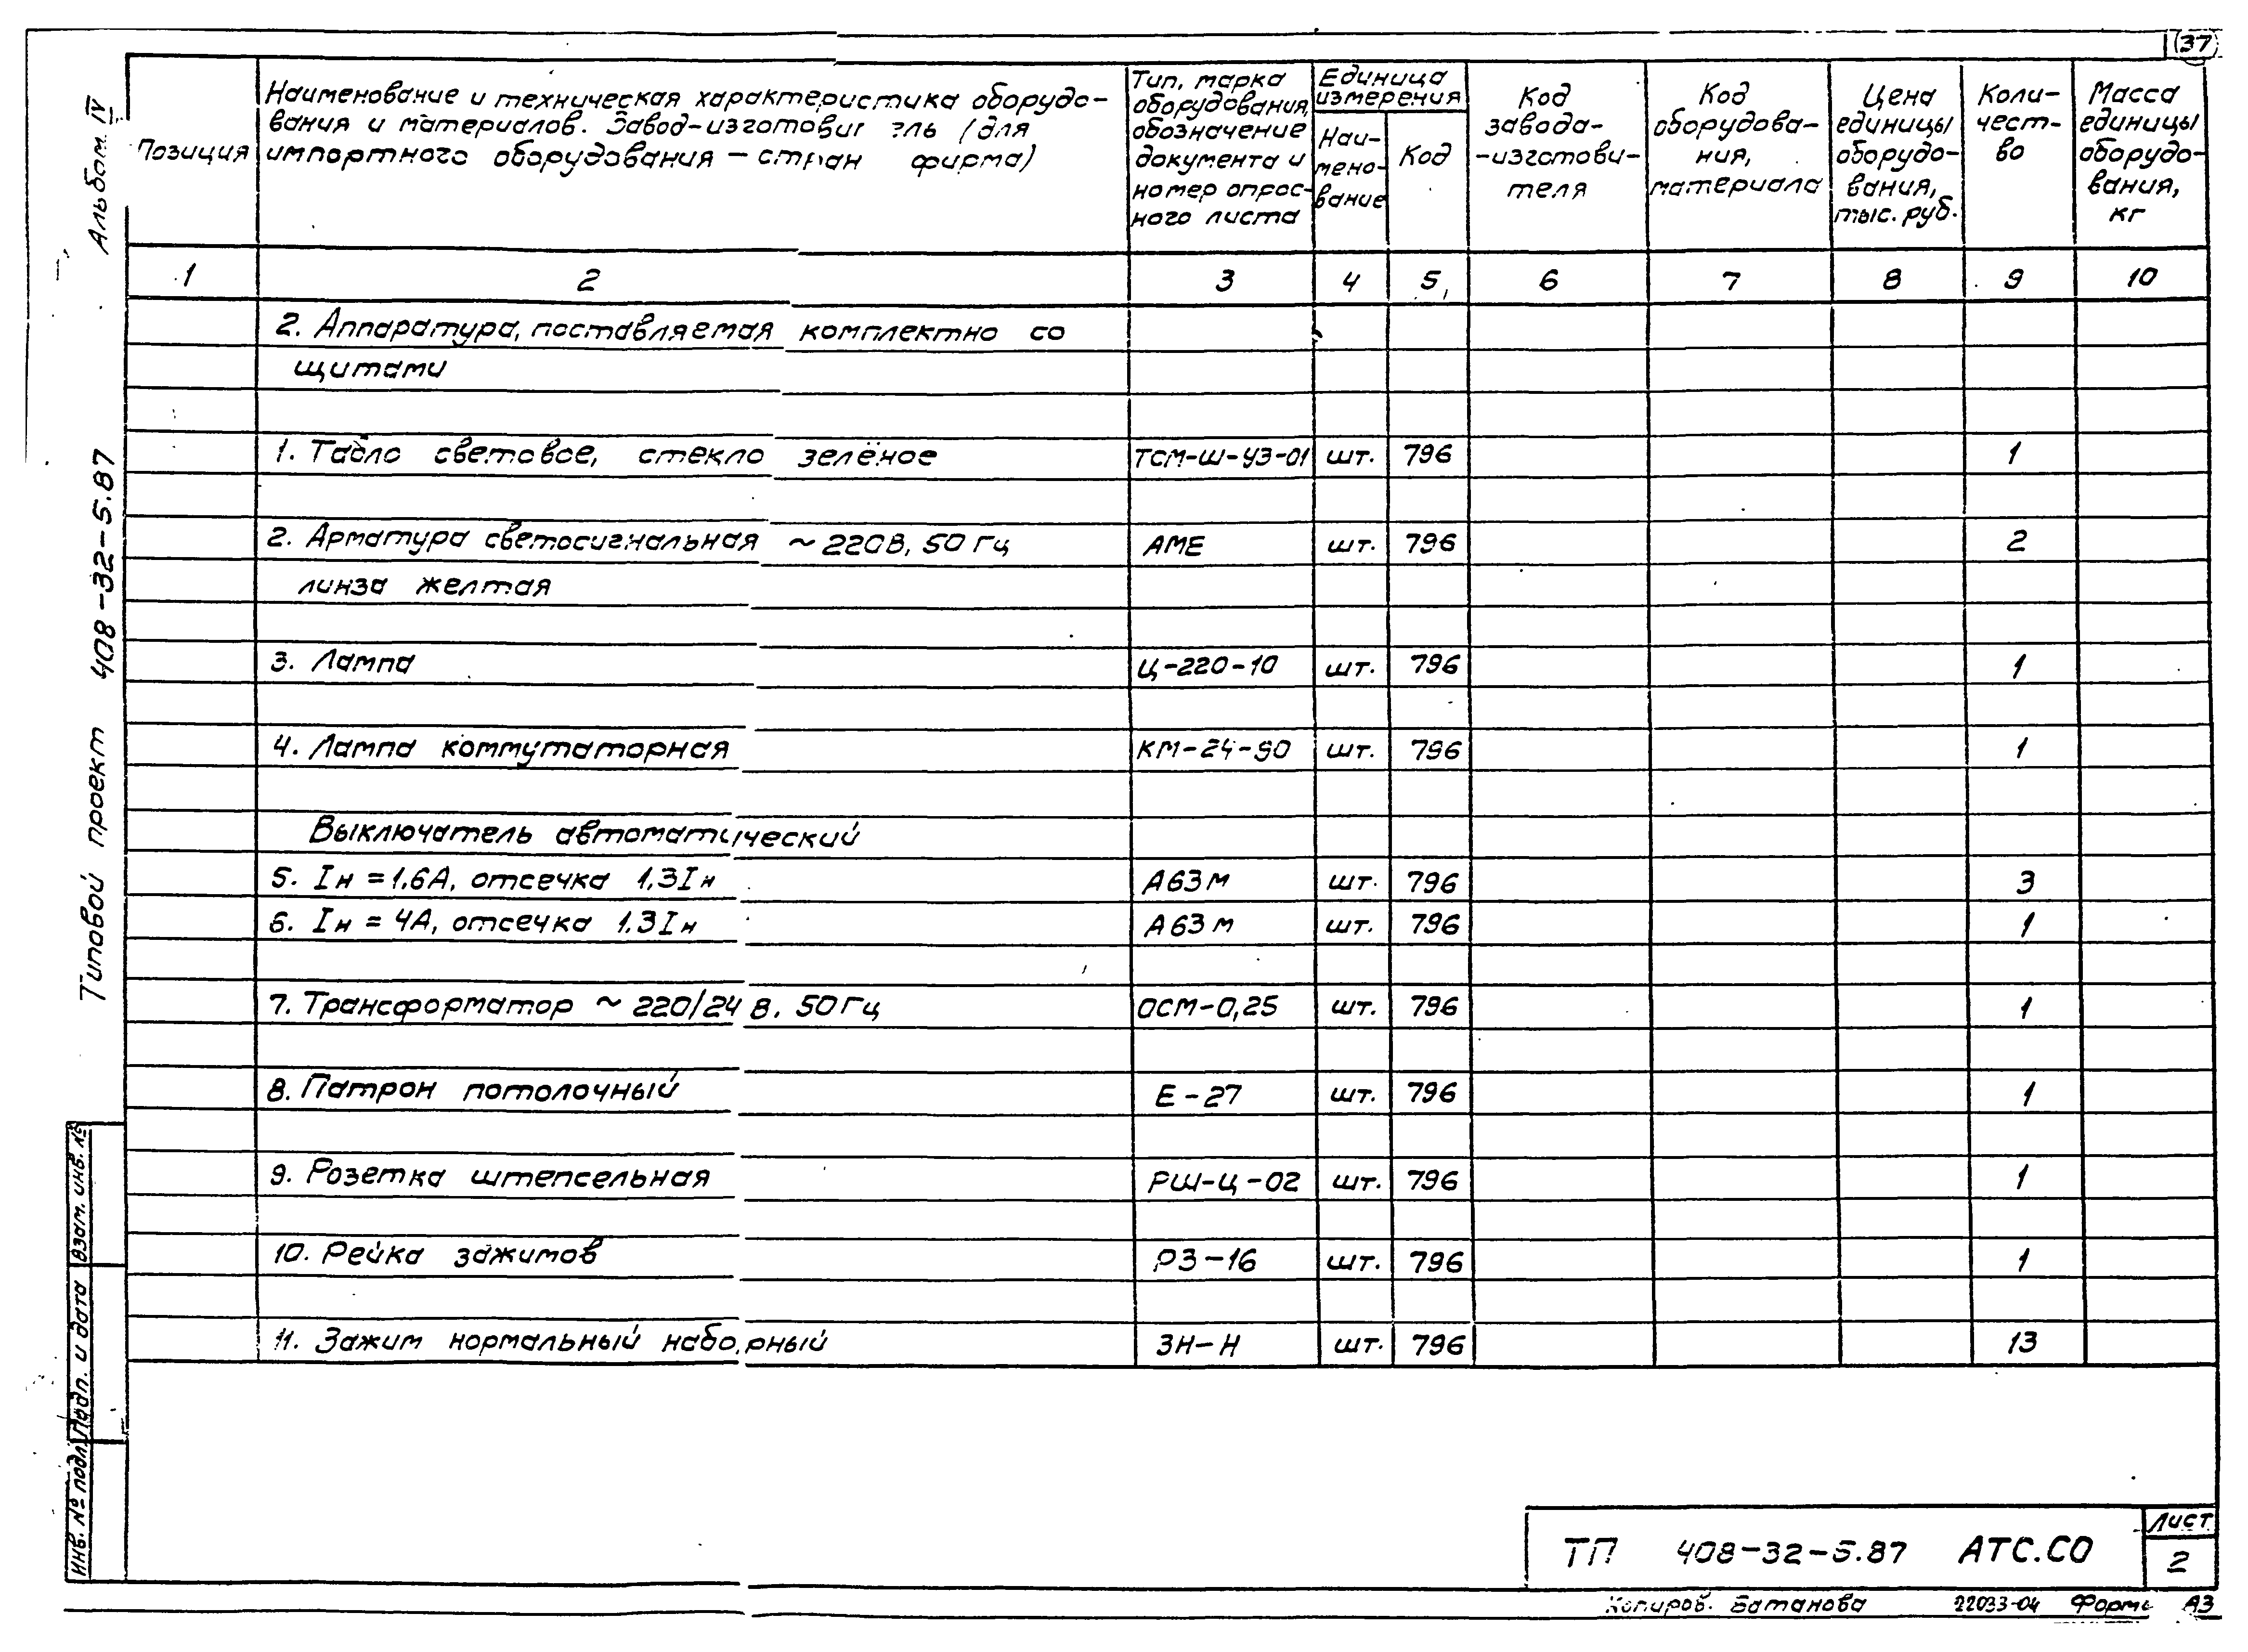 37
Альбом IV
Типовой проект 408-32-5.87
Позиция
Наименование и техническая характеристика оборудо-
вания и материалов. Завод-изготовитель (для
импортного оборудования - стран фирма)
Тип, марка
оборудования,
обозначение
документа и
номер опрос-
ного листа
Единица
измерения
Наи-
мено-
вание
Код
Код
завода-
-изготови-
теля
Код
оборудова-
ния,
материала
Цена
единицы
оборудо-
вания,
тыс. руб.
Коли-
чест-
во
Масса
единицы
оборудо-
вания,
кг
1 2 3 4 5 6 7 8 9 10
2. Аппаратура, поставляемая комплектно со
щитами
1. Табло световое, стекло зелёное ТСМ-Ш-У3-01 шт. 796 1
2. Арматура светосигнальная ~ 220В, 50 Гц АМЕ шт. 796 2
линза желтая
3. Лампа Ц-220-10 шт. 796 1
4. Лампа коммутаторная КМ-24-90 шт. 796 1
Выключатель автоматический
5. Iн = 1,6А, отсечка 1,3Iн А63м шт. 796 3
6. Iн = 4А, отсечка 1,3Iн А63м шт. 796 1
7. Трансформатор ~ 220/24 в. 50Гц ОСМ-0,25 шт. 796 1
8. Патрон потолочный Е-27 шт. 796 1
9. Розетка штепсельная РШ-Ц-02 шт. 796 1
10. Рейка зажимов РЗ-16 шт. 796 1
11. Зажим нормальный наборный ЗН-Н шт. 796 13
Взам. инв. №
Подп. и дата
Инв. № подл.
ТП 408-32-5.87 АТС.СО
Лист
2
Копиров. Батанова 22033-04 Форм А3